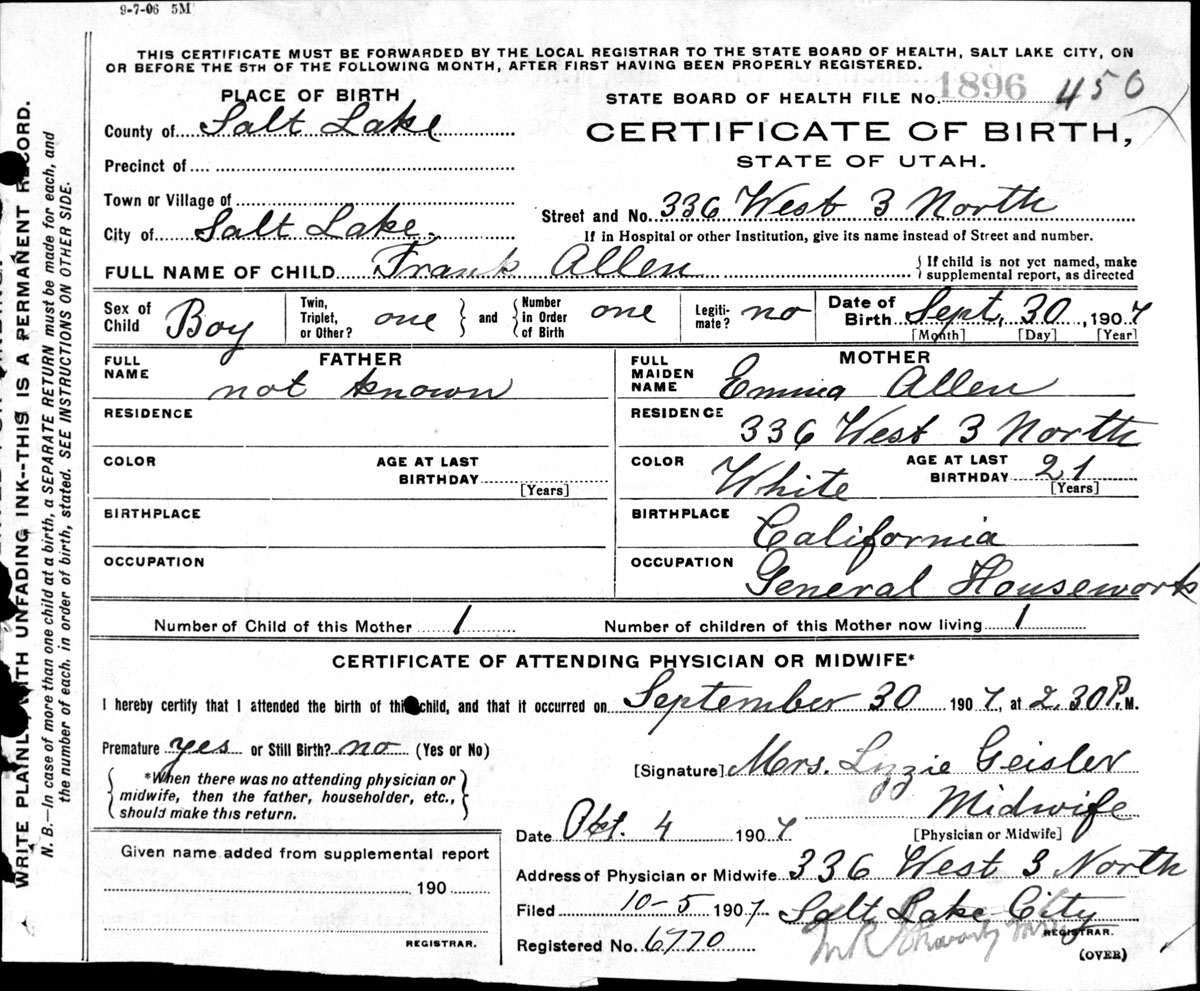 9-7-06 5M
THIS CERTIFICATE MUST BE FORWARDED BY THE LOCAL REGISTRAR TO THE STATE BOARD OF HEALTH, SALT LAKE CITY, ON
OR BEFORE THE 5TH OF THE FOLLOWING MONTH, AFTER FIRST HAVING BEEN PROPERLY REGISTERED.
PLACE OF BIRTH
County of Salt Lake
Precinct of
Town or Village of
City of Salt Lake.
STATE BOARD OF HEALTH FILE No. 1896 450
CERTIFICATE OF BIRTH,
STATE OF UTAH.
Street and No. 336 West 3 North
If in Hospital or other Institution, give its name instead of Street and number.
FULL NAME OF CHILD Frank Allen
If child is not yet named, make
supplemental report, as directed
Sex of Child Boy
Twin, Triplet, or Other? one and Number in Order of Birth one
Legiti-mate? no
Date of Birth Sept, 30, 1907
[Month] [Day] [Year]
FATHER
FULL NAME not known
RESIDENCE
COLOR AGE AT LAST BIRTHDAY [Years]
BIRTHPLACE
OCCUPATION
MOTHER
FULL MAIDEN NAME Emma Allen
RESIDENCE 336 West 3 North
COLOR White AGE AT LAST BIRTHDAY 21 [Years]
BIRTHPLACE California
OCCUPATION General Housework
Number of Child of this Mother 1 Number of children of this Mother now living 1
CERTIFICATE OF ATTENDING PHYSICIAN OR MIDWIFE*
I hereby certify that I attended the birth of this child, and that it occurred on September 30 1907, at 2.30 P.M.
Premature yes or Still Birth? no (Yes or No)
*When there was no attending physician or
midwife, then the father, householder, etc.,
should make this return.
[Signature] Mrs. Lizzie Geisler
Midwife
[Physician or Midwife]
Date Oct. 4 1907
Address of Physician or Midwife 336 West 3 North
Salt Lake City
Filed 10-5 1907
Registered No. 6770
REGISTRAR.
(OVER)
Given name added from supplemental report
190
REGISTRAR.
WRITE PLAINLY, WITH UNFADING INK--THIS IS A PERMANENT RECORD.
N. B.—In case of more than one child at a birth, a SEPARATE RETURN must be made for each, and
the number of each, in order of birth, stated. SEE INSTRUCTIONS ON OTHER SIDE.